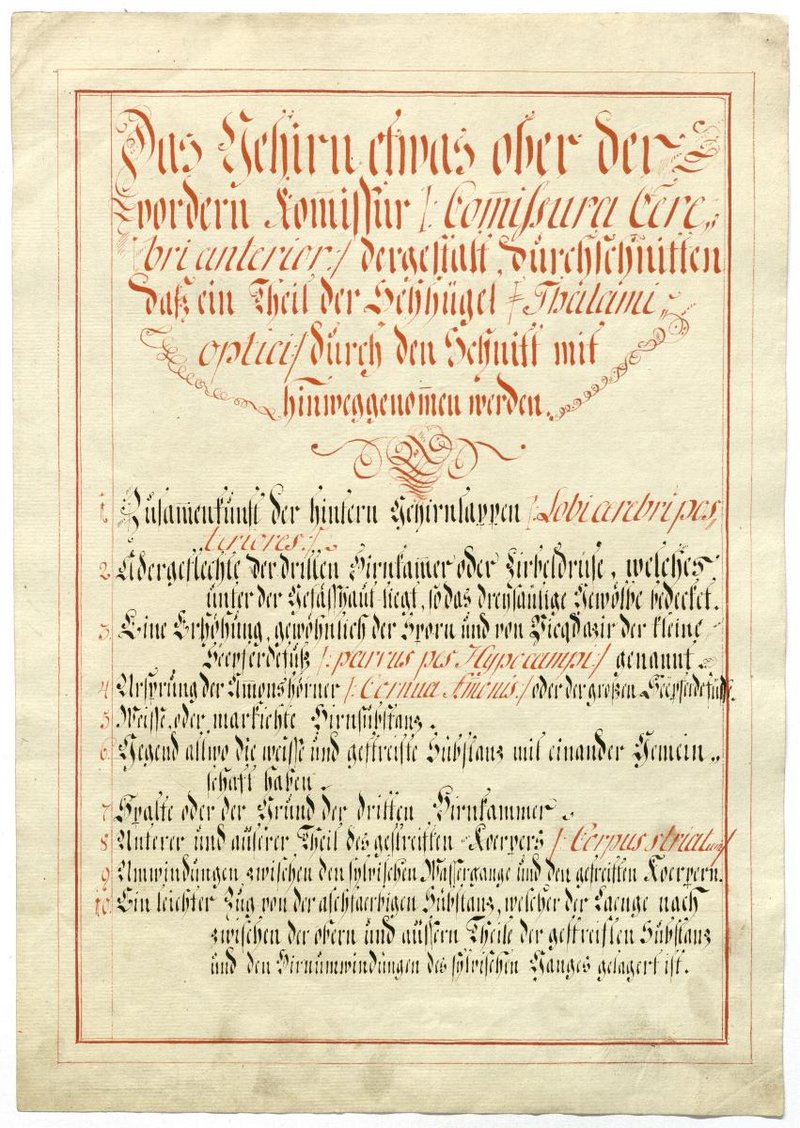 Das Gehirn etwas ober der
vordern Kom̅issur /: Com̅issura Cere„
bri anterior :/ dergestalt durchschnitten
daß ein Theil der Sehhügel /: Thalami„
optici :/ durch den Schnitt mit
hinweggenom̅en werden.
1. Zusam̅enkunft der hintern Gehirnlappen /: Lobi cerebri pos„
teriores :/
2. Adergeflechte der dritten Hirnkam̅er oder Zirbeldrüse, welches
unter der Gefässhaut liegt, so das dreysäulige Gewölbe bedecket.
3. Eine Erhöhung, gewöhnlich der Sporn und von Vicqdazir der kleine
Seepferdefüß /: parvus pes Hypocampi :/ genannt.
4. Ursprung der Am̅onshörner /: Cornua Am̅onis :/ oder der großen Seepferdefüße.
5. Weisse, oder markichte Hirnsubstanz.
6. Gegend allwo die weisse und gestreifte Substanz mit einander Gemein„
schaft haben.
7. Spalte oder der Grund der dritten Hirnkammer.
8. Unterer und äuserer Theil des gestreiften Koerpers /: Corpus striatum :/
9. Umwindungen zwischen den sylvischen Wassergange und den gestreiften Koerpern.
10. Ein leichter Zug von der aschfaerbigen Substanz, welcher der Laenge nach
zwischen der obern und äussern Theile der gestreiften Substanz
und den Hirnumwindungen des sylvischen Ganges gelagert ist.